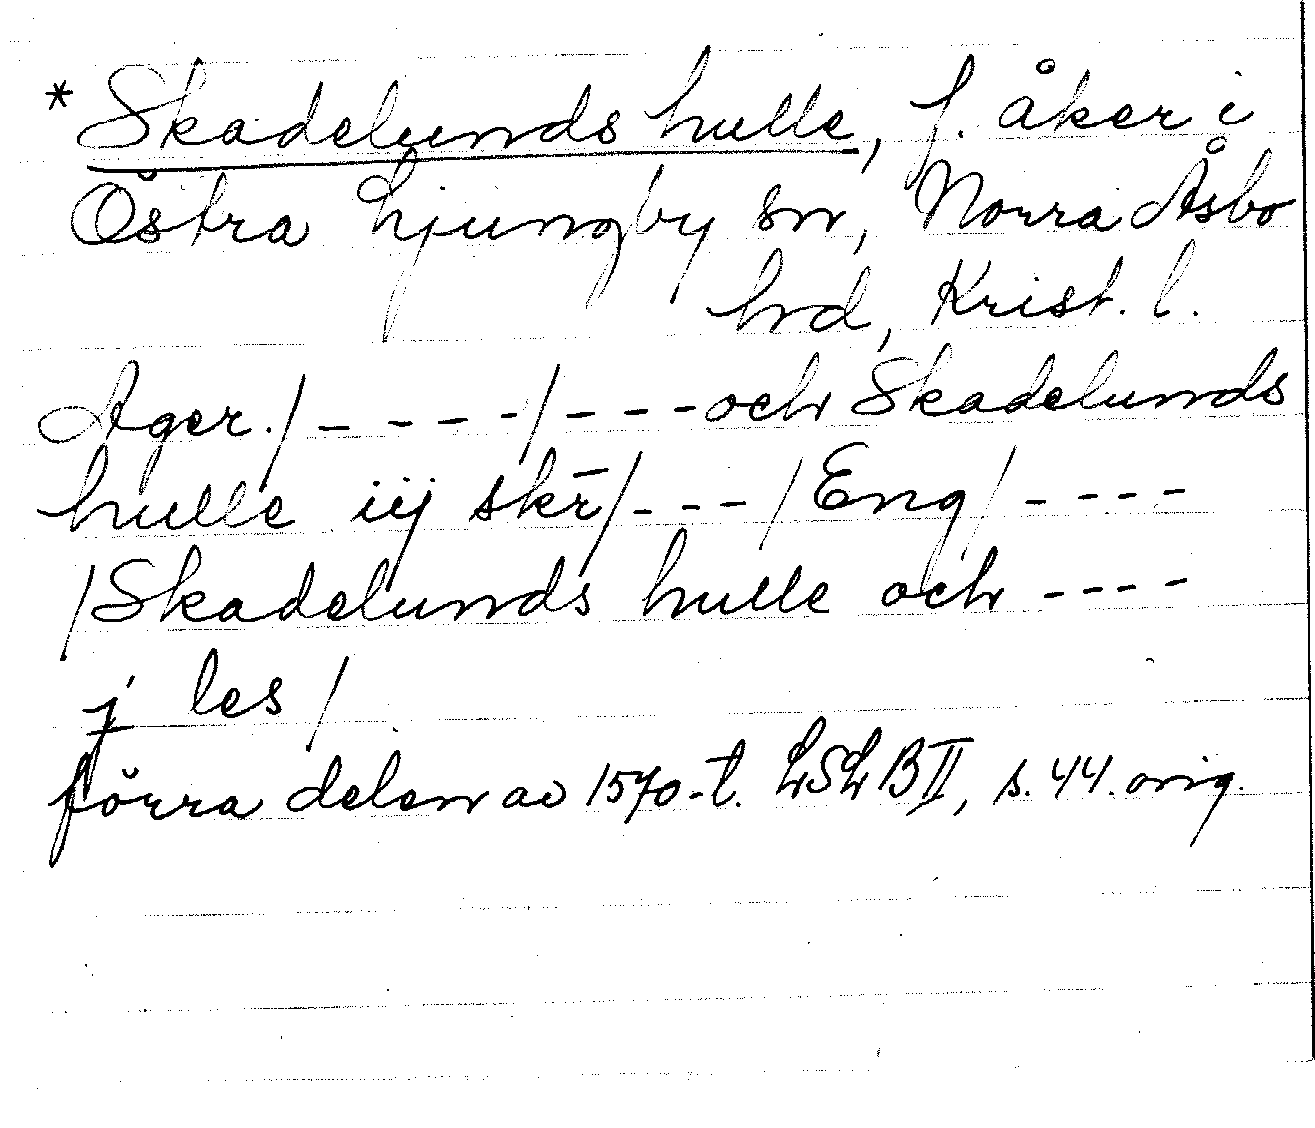 *Skadelunds hulle, f. åker i
Östra Ljungby sn, Norra Åsbo
hd, Krist. l.
Ager./----/---och Skadelunds
hulle iij skr̄/---/Eng/----
/Skadelunds hulle och ----
j les/
förra delen av 1570-t. LSLB II, s. 44. orig.